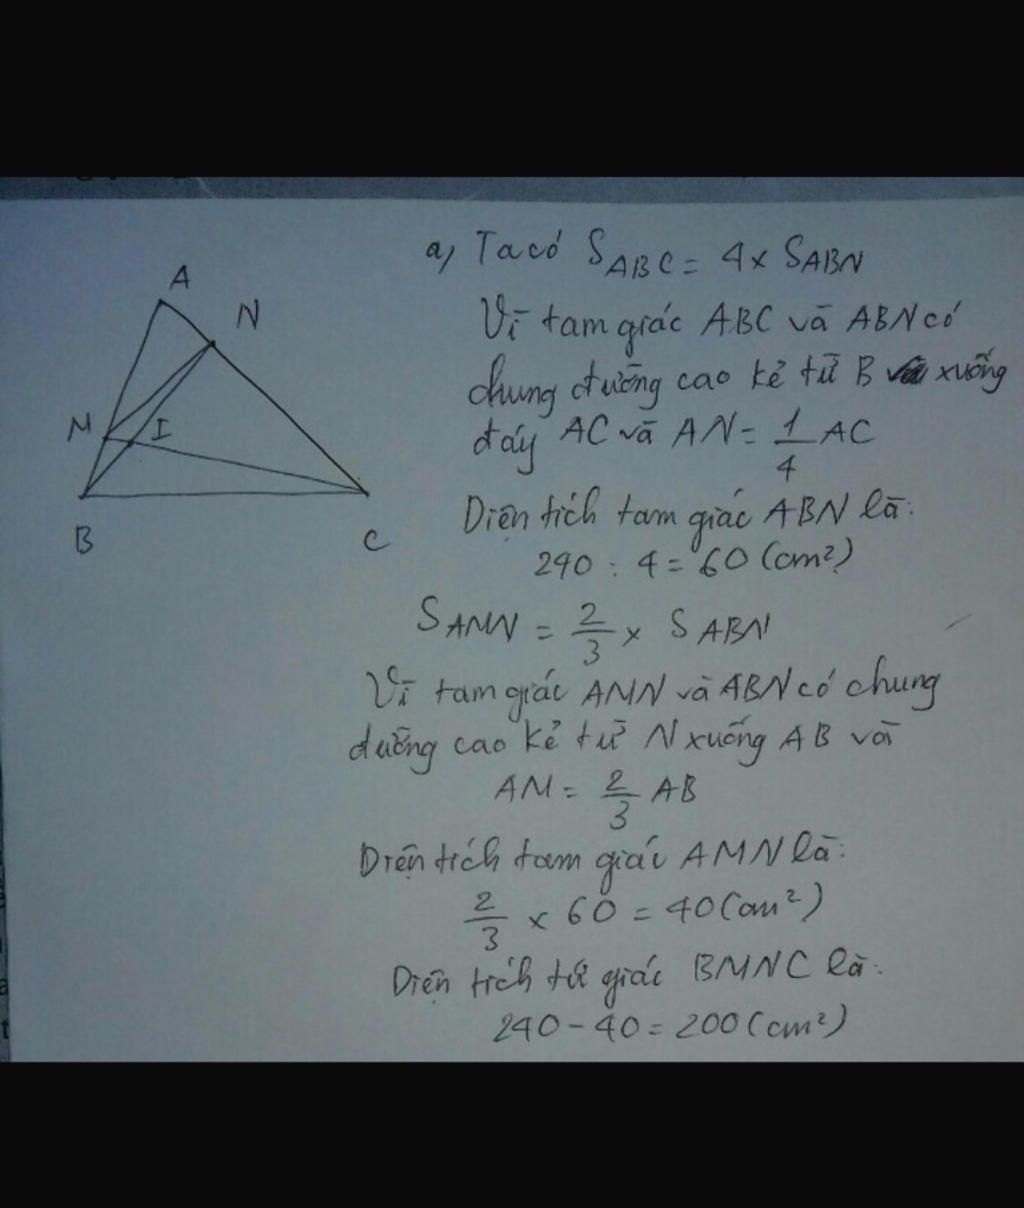 A
N
M
I
B
C
a, Ta có S ABC = 4 x S ABN
Vì tam giác ABC và ABN có
chung đường cao kẻ từ B xuống
đáy AC và AN = 1/4 AC
Diện tích tam giác ABN là:
240 : 4 = 60 (cm²)
S AMN = 2/3 x S ABN
Vì tam giác AMN và ABN có chung
đường cao kẻ từ N xuống AB và
AM = 2/3 AB
Diện tích tam giác AMN là:
2/3 x 60 = 40 (cm²)
Diện tích tứ giác BMNC là:
240 - 40 = 200 (cm²)